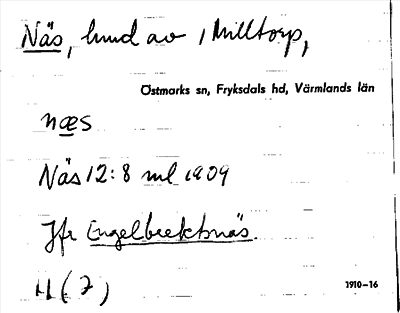 Näs, hmd av Milltorp,
Östmarks sn, Fryksdals hd, Värmlands län
næs
Näs 12:8 ml 1909
Jfr Engelbrektsnäs.
H (7)
1910-16